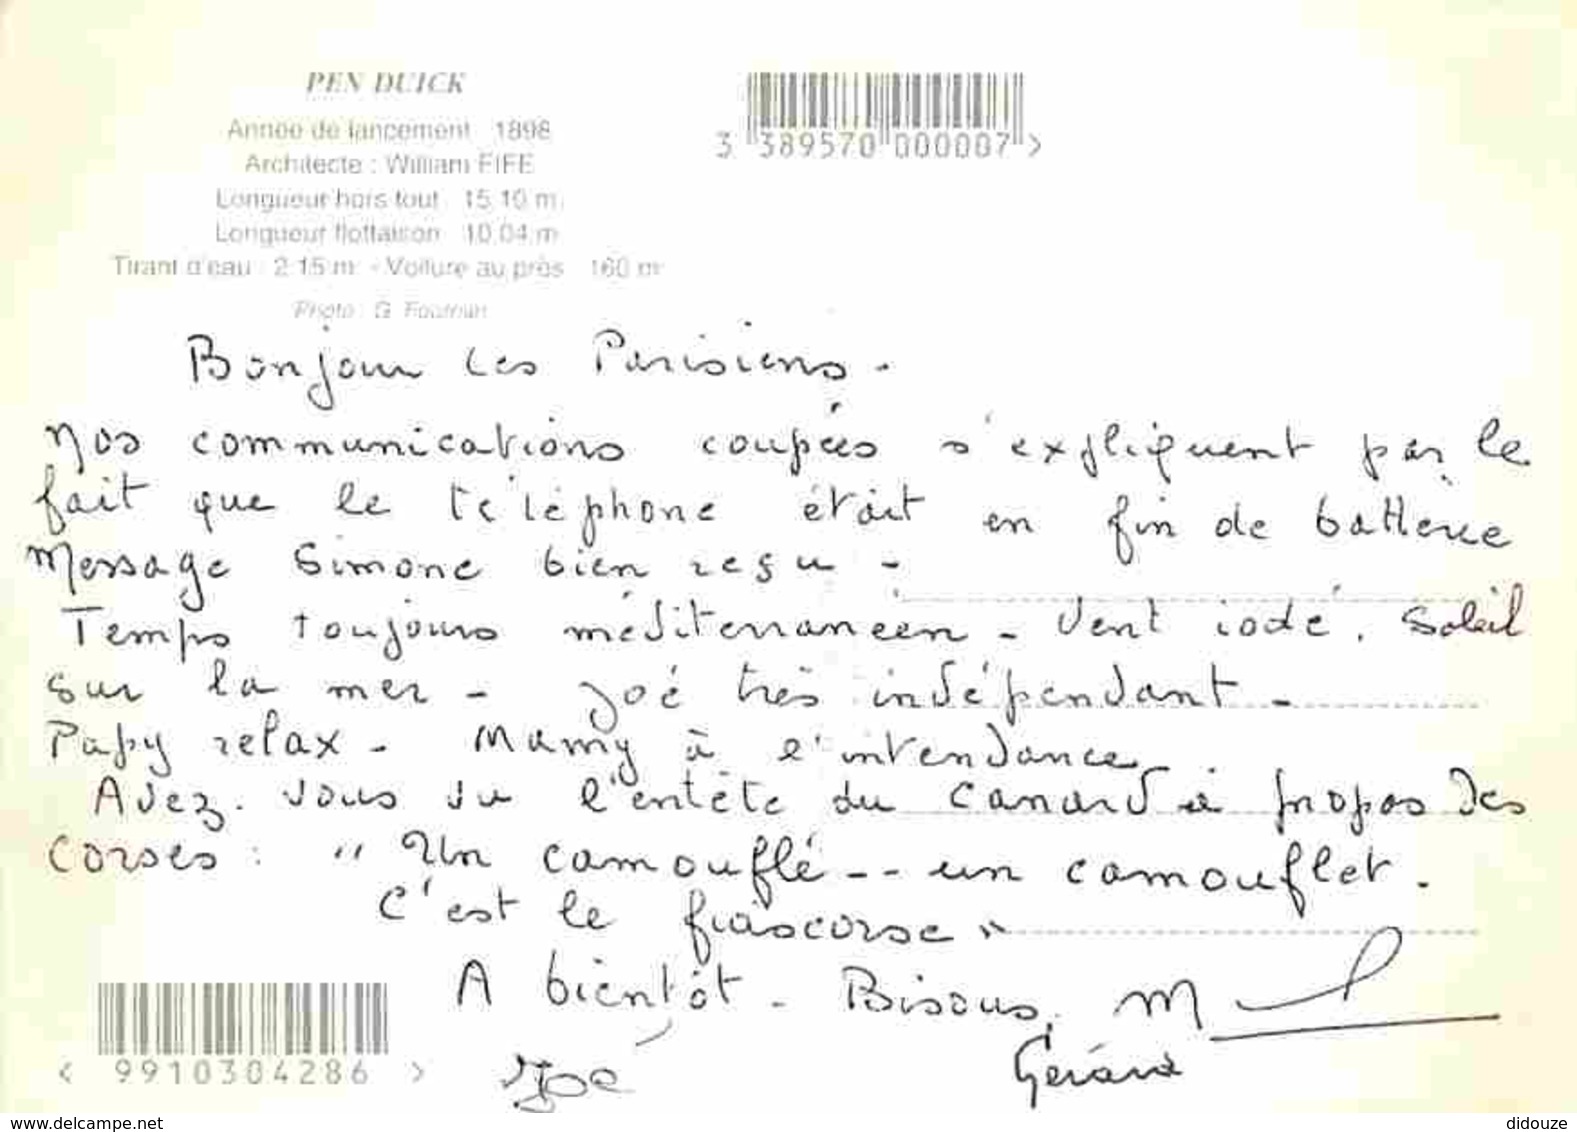 PEN DUICK
Année de lancement : 1898
Architecte : William FIFE
Longueur hors tout : 15.10 m
Longueur flottaison : 10.04 m
Tirant d'eau : 2.15 m - Voilure au près : 160 m
Photo : G.
3 389570 000007 >
Bonjour les Parisiens -
Nos communications coupées s'expliquent par le
fait que le téléphone était en fin de batterie
Message Simone bien reçu -
Temps toujours méditerranéen - Vent iodé, soleil
sur la mer - Joé très indépendant -
Papy relax - Mamy à l'intendance
Avez-vous vu l'entête du Canard à propos des
Corses : "Un camouflé -- un camouflet.
C'est le fiascorse"
A bientôt - Bisous, M
Joé Gérard
< 9910304286 >
www.delcampe.net didouze